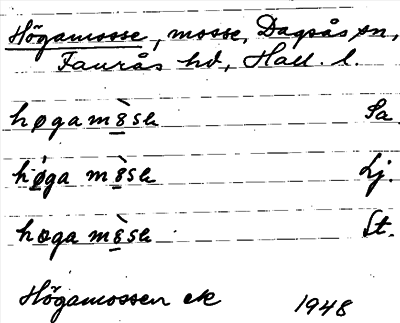 Högamosse, mosse, Dagsås sn,
Faurås hd, Hall. l.
høgamòsɐ Sa.
høga mòsɐ Lj.
høga mòsɐ St.
Högamossen ek 1948